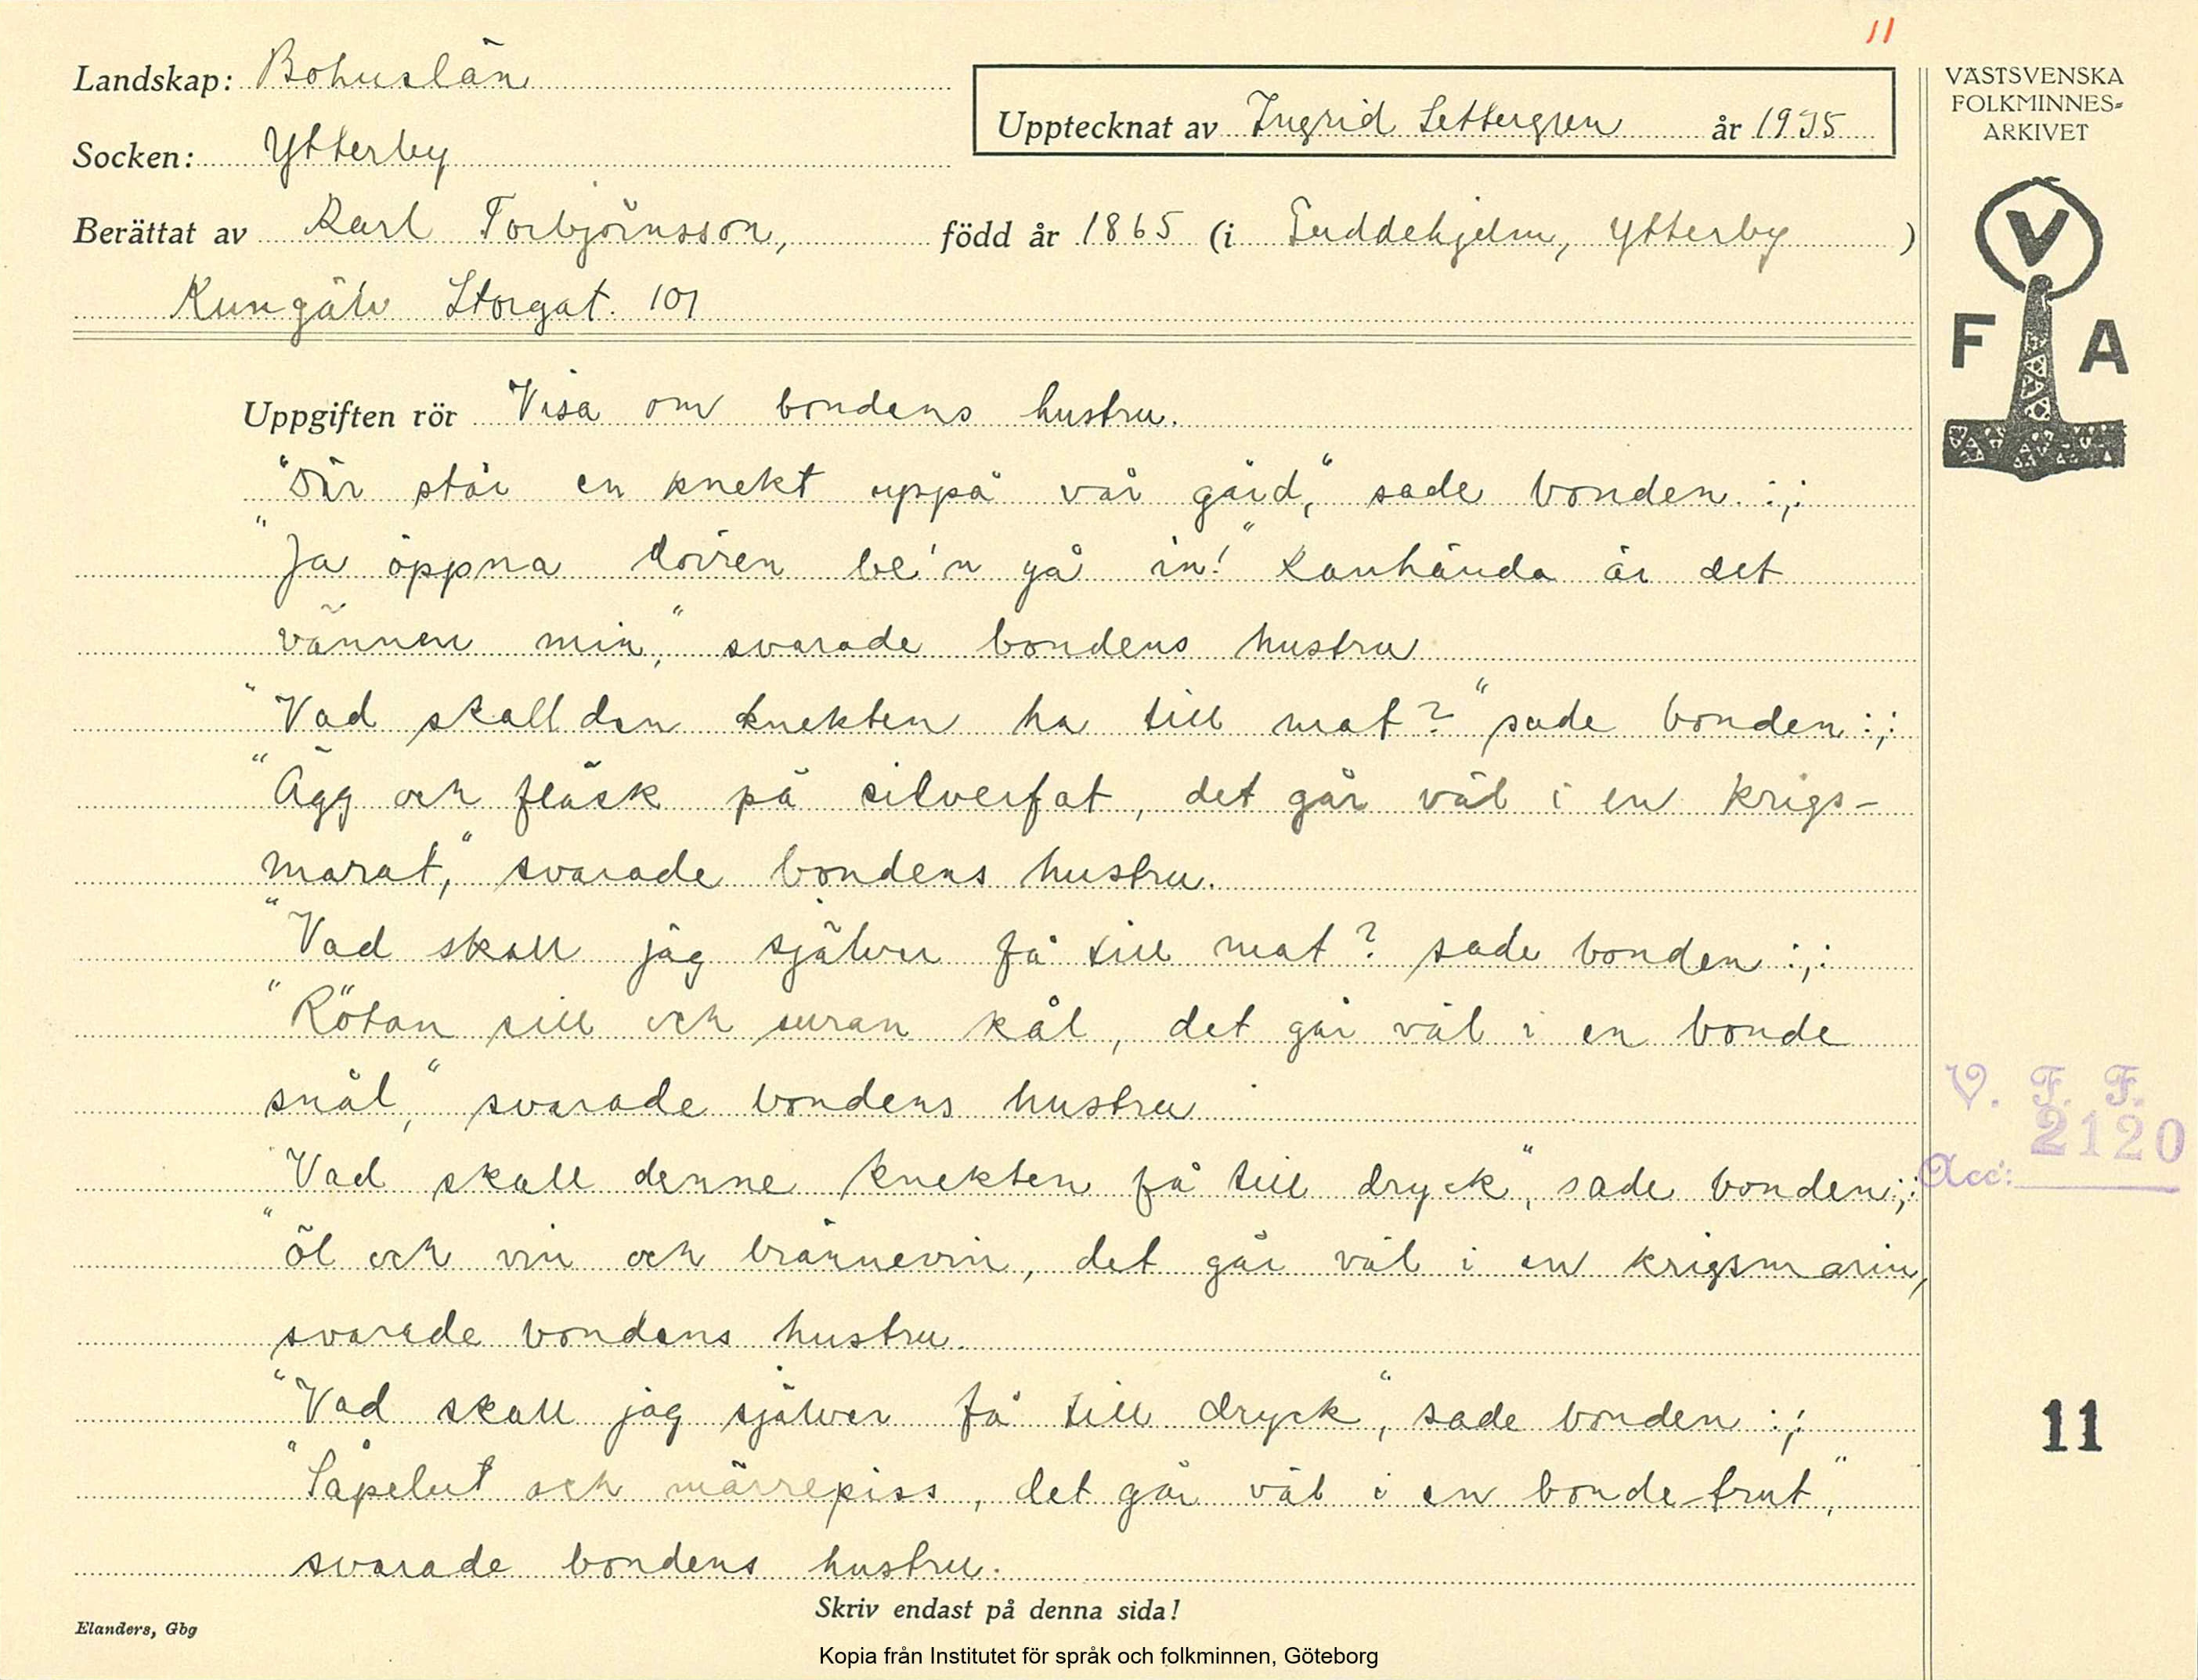 11
Landskap: Bohuslän
Socken: Ytterby
Upptecknat av Ingrid Settergren år 1935
Berättat av Karl Torbjörnsson, född år 1865 (i Guddehjelm, Ytterby)
Kungälv Storgat. 101
VÄSTSVENSKA
FOLKMINNES-
ARKIVET
V
F A
Uppgiften rör Visa om bondens hustru.
"Där står en knekt uppå vår gård," sade bonden :,:
"Ja öppna dörren be'n gå in!" Kanhända är det
vännen min," svarade bondens hustru
"Vad skall den knekten ha till mat?" sade bonden :,:
"Ägg och fläsk på silverfat, det går väl i en krigs-
marat," svarade bondens hustru.
"Vad skall jag själver få till mat? sade bonden :,:
"Rötan sill och suran kål, det går väl i en bonde
snål," svarade bondens hustru
"Vad skall denne knekten få till dryck", sade bonden :,:
"öl och vin och brännevin, det går väl i en krigsmarin,
svarade bondens hustru.
"Vad skall jag själver få till dryck", sade bonden :,:
"Såpelut och märrepiss, det går väl i en bonde-trut,"
svarade bondens hustru.
V. F. F.
Acc: 2120
11
Skriv endast på denna sida!
Elanders, Gbg
Kopia från Institutet för språk och folkminnen, Göteborg